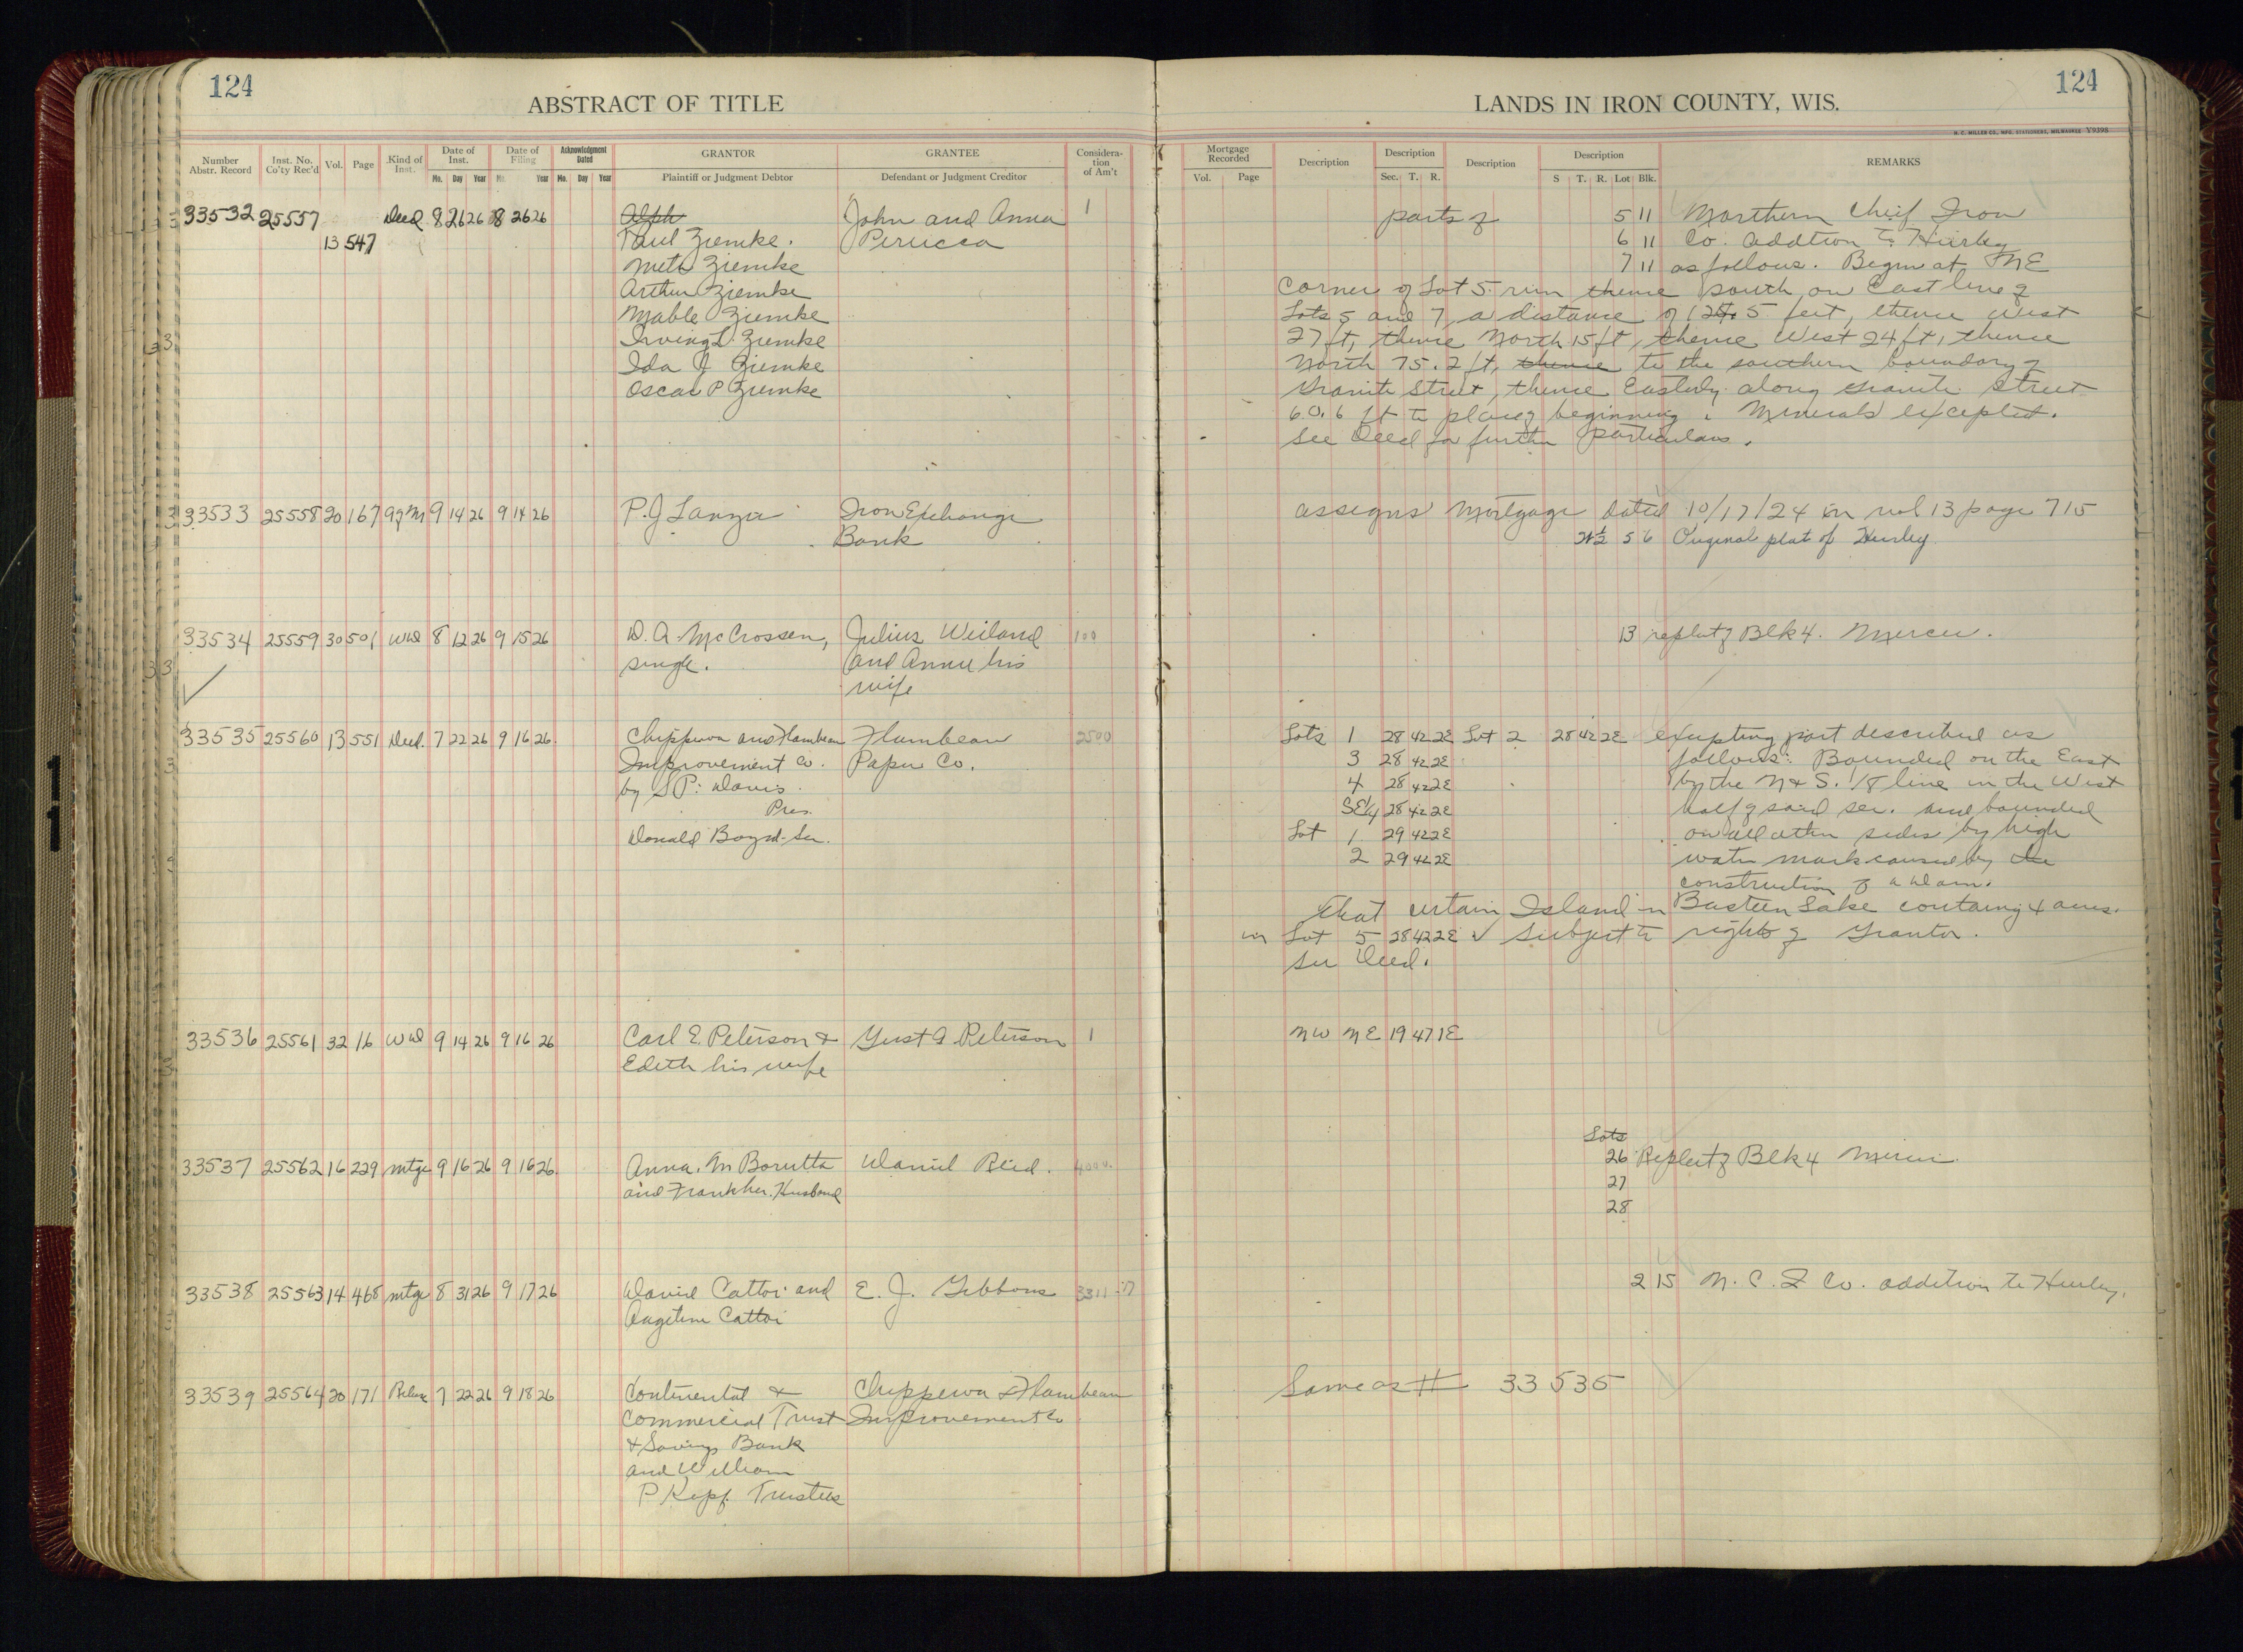 124
ABSTRACT OF TITLE
Number Abstr. Record
Inst. No. Co'ty Rec'd
Vol.
Page
Kind of Inst.
Date of Inst.
Mo. Day Year
Date of Filing
Mo. Year
Acknowledgment Dated
Mo. Day Year
GRANTOR
Plaintiff or Judgment Debtor
GRANTEE
Defendant or Judgment Creditor
Consideration of Am't
LANDS IN IRON COUNTY, WIS.
124
H. C. MILLER CO., MFG. STATIONERS, MILWAUKEE Y9398
Mortgage Recorded
Vol. Page
Description
Description
Sec. T. R.
Description
Description
S T. R. Lot Blk.
REMARKS
33532 25557 Deed 8 26 26 8 26 26 Alph John and Anna 1 parts of 5 11 Northern Chief Iron
13 547 Paul Ziemke. Perucca 6 11 Co. addtion to Hurley
Meta Ziemke 7 11 as follows. Begin at NE
Arthur Ziemke corner of Lot 5. run thence south on East line of
Mable Ziemke Lots 5 and 7, a distance of 125 feet, thence West
Irving L. Ziemke 27 ft, thence North 15 ft, thence West 24 ft, thence
Ida J Ziemke North 75.2 ft, thence to the southern boundary of
Oscar P Ziemke Granite Street, thence Easterly along Granite Street
60.6 ft to place of beginning. Minerals excepted.
See Deed for further particulars.
33533 25558 20 167 Ag M 9 14 26 9 14 26 P. J Lanza Iron Exchange assigns Mortgage dated 10/17/24 in vol 13 page 715
Bank N½ 5 6 Original plat of Hurley
33534 25559 30 501 WD 8 12 26 9 15 26 D. A. McCrossen, Julius Weiland 100 13 replat of Blk 4. Mercer.
single. and Annie his
wife
33535 25560 13 551 Deed. 7 22 26 9 16 26. Chippewa and Flambeau Flambeau 2500 Lots 1 28 42 2E Lot 2 28 42 2E excepting part described as
Improvement Co. Paper Co. 3 28 42 2E follows: Bounded on the East
by S P. Davis 4 28 42 2E by the N & S. 1/8 line in the West
Pres. SE¼ 28 42 2E half of said sec. and bounded
Donald Boyd-Sec. Lot 1 29 42 2E on all other sides by high
2 29 42 2E water mark caused by the
construction of a dam.
that certain Island in Basteen Lake containg 4 acres.
in Lot 5 28 42 2E ✓ Subject to rights of Grantor.
See Deed.
33536 25561 32 16 WD 9 14 26 9 16 26 Carl E. Peterson & Gust A Peterson 1 NW NE 19 47 1E
Edith his wife
Lots
33537 25562 16 229 mtge 9 16 26 9 16 26. Anna. M Borutta Daniel Reid. 4000. 26 Replat of Blk 4 Mercer.
and Frank her Husband 27
28
33538 25563 14 468 mtge 8 31 26 9 17 26 David Cattoi and E. J. Gibbons 3311.17 2 15 N. C. I Co. addition to Hurley.
Cattoi
33539 25564 20 171 Release 7 22 26 9 18 26 Continental & Chippewa & Flambeau Same as # 33535
Commercial Trust Improvement Co
& Savings Bank
and William
P Kopf. Trustees